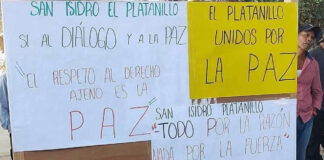 SAN ISIDRO EL PLATANILLO
SI AL DIÁLOGO Y A LA PAZ
"EL RESPETO AL DERECHO
AJENO ES LA
PAZ"
EL PLATANILLO
UNIDOS POR
LA PAZ
SAN ISIDRO PLATANILLO
"TODO POR LA RAZÓN
NADA POR LA FUERZA"